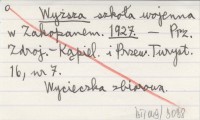 Wyższa szkoła wojenna
w Zakopanem. 1927. — Prz.
Zdroj.-Kąpiel. i Przew. Turyst.
16, nr 7.
Wycieczka zbiorowa.